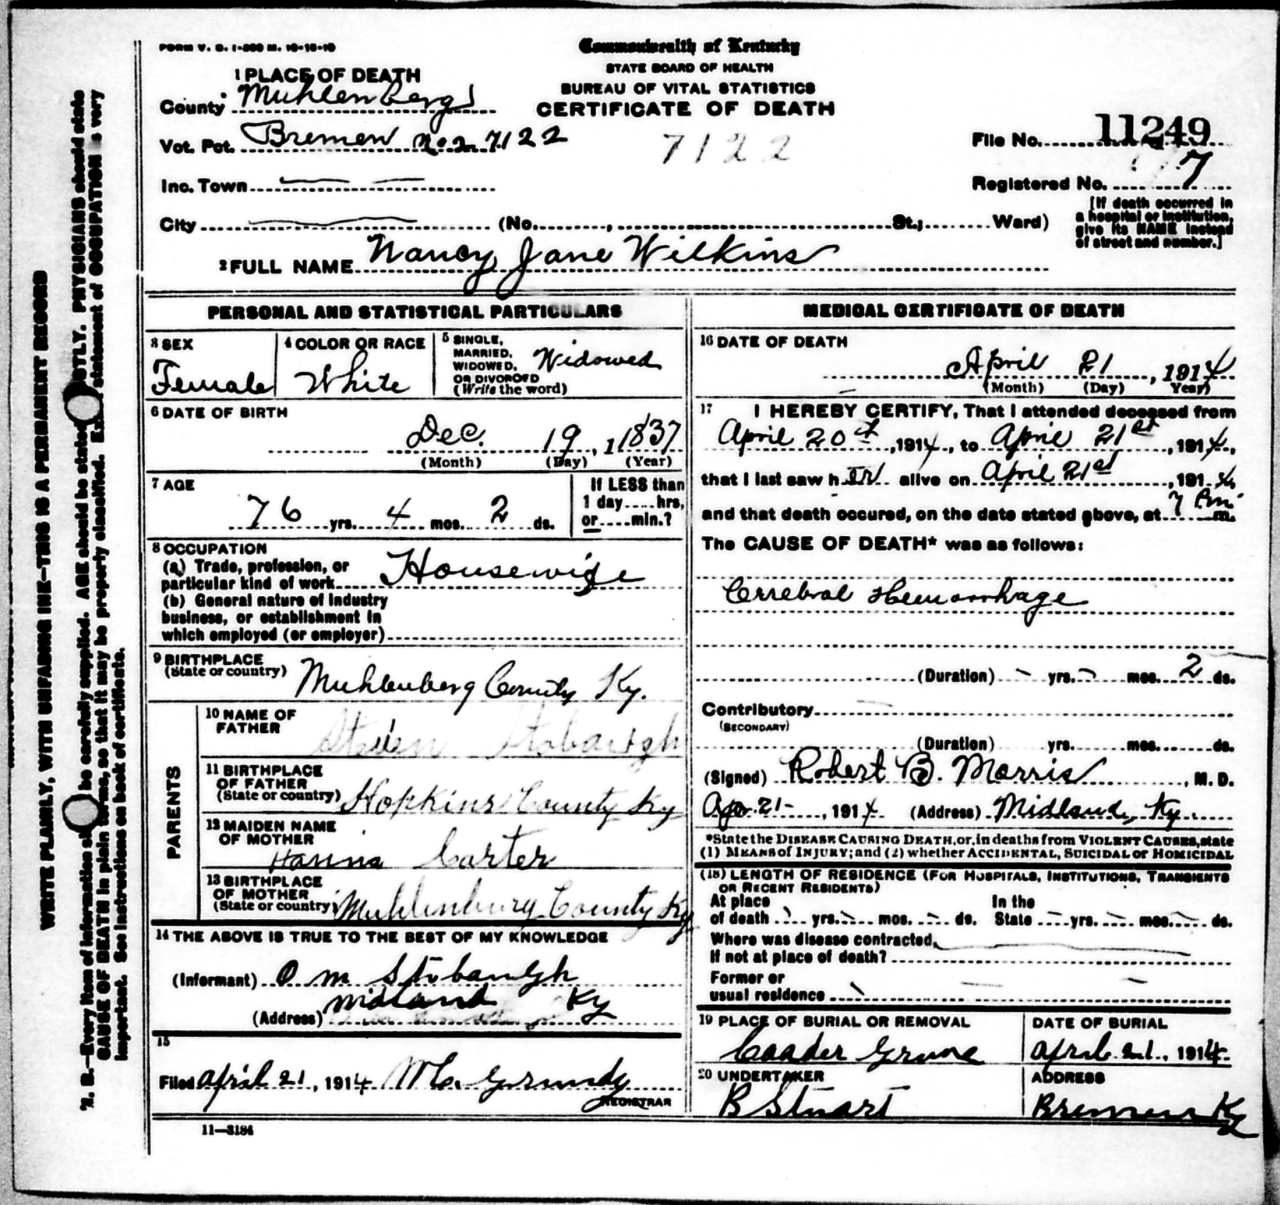 FORM V. S. 1-
Commonwealth of Kentucky
STATE BOARD OF HEALTH
BUREAU OF VITAL STATISTICS
CERTIFICATE OF DEATH
1 PLACE OF DEATH
County Muhlenberg
Vot. Pct. Bremen No 2 7122
7122
File No. 11249
Inc. Town
Registered No. 7
City (No. , St.; Ward)
[If death occurred in
a hospital or institution,
give its NAME instead
of street and number.]
2 FULL NAME Nancy Jane Wilkins
PERSONAL AND STATISTICAL PARTICULARS
3 SEX
Female
4 COLOR OR RACE
White
5 SINGLE,
MARRIED,
WIDOWED,
OR DIVORCED
(Write the word)
Widowed
6 DATE OF BIRTH
Dec. 19, 1 1837
(Month) (Day) (Year)
7 AGE
76 yrs. 4 mos. 2 ds.
If LESS than
1 day....hrs,
or....min.?
8 OCCUPATION
(a) Trade, profession, or
particular kind of work Housewife
(b) General nature of industry
business, or establishment in
which employed (or employer)
9 BIRTHPLACE
(State or country) Muhlenberg County Ky.
PARENTS
10 NAME OF
FATHER Stobaugh
11 BIRTHPLACE
OF FATHER
(State or country) Hopkins County Ky
12 MAIDEN NAME
OF MOTHER
Hanna Carter
13 BIRTHPLACE
OF MOTHER
(State or country) Muhlenburg County Ky
14 THE ABOVE IS TRUE TO THE BEST OF MY KNOWLEDGE
(Informant) O M Stobaugh
(Address) Midland Ky
15
Filed April 21, 1914 Grundy
REGISTRAR
11—3184
MEDICAL CERTIFICATE OF DEATH
16 DATE OF DEATH
April 21, 1914
(Month) (Day) Year)
17 I HEREBY CERTIFY, That I attended deceased from
April 20th, 1914, to April 21st, 1914,
that I last saw h er alive on April 21st, 1914,
and that death occured, on the date stated above, at 7 Pm m.
The CAUSE OF DEATH* was as follows:
Cerrebral Hemorrhage
(Duration) yrs. mos. 2 ds.
Contributory
(SECONDARY)
(Duration) yrs. mos. ds.
(Signed) Robert B. Morris, M. D.
Apr 21-, 1914 (Address) Midland, Ky.
*State the DISEASE CAUSING DEATH, or, in deaths from VIOLENT CAUSES, state
(1) MEANS of INJURY; and (2) whether ACCIDENTAL, SUICIDAL or HOMICIDAL
(18) LENGTH OF RESIDENCE (FOR HOSPITALS, INSTITUTIONS, TRANSIENTS
OR RECENT RESIDENTS)
At place
of death yrs. mos. ds.
In the
State yrs. mos. ds.
Where was disease contracted,
If not at place of death?
Former or
usual residence
19 PLACE OF BURIAL OR REMOVAL
Grove
DATE OF BURIAL
April 21, 1914
20 UNDERTAKER
B Stuart
ADDRESS
Bremen Ky
WRITE PLAINLY, WITH UNFADING INK—THIS IS A PERMANENT RECORD
N. B.—Every item of information be carefully supplied. AGE should be stated PHYSICIANS should state
CAUSE OF DEATH in plain terms, so that it may be properly classified. statement of OCCUPATION is very
important. See instructions on back of certificate.